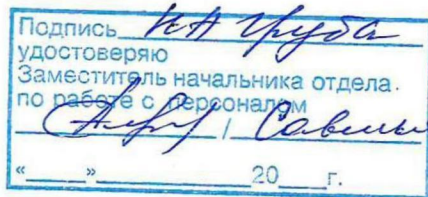 Подпись КА Груба
удостоверяю
Заместитель начальника отдела
по работе с персоналом
/
«____»____________20___г.